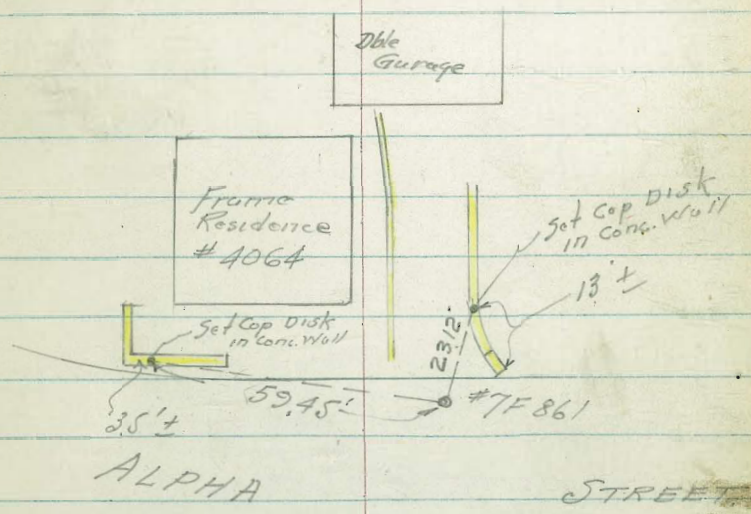 Dble
Garage
Frame
Residence
# 4064
Set Cop Disk
in Conc. Wall
13'±
Set Cop Disk
in Conc. Wall
23.12'
59.45'
#7F861
3.5'±
ALPHA STREET